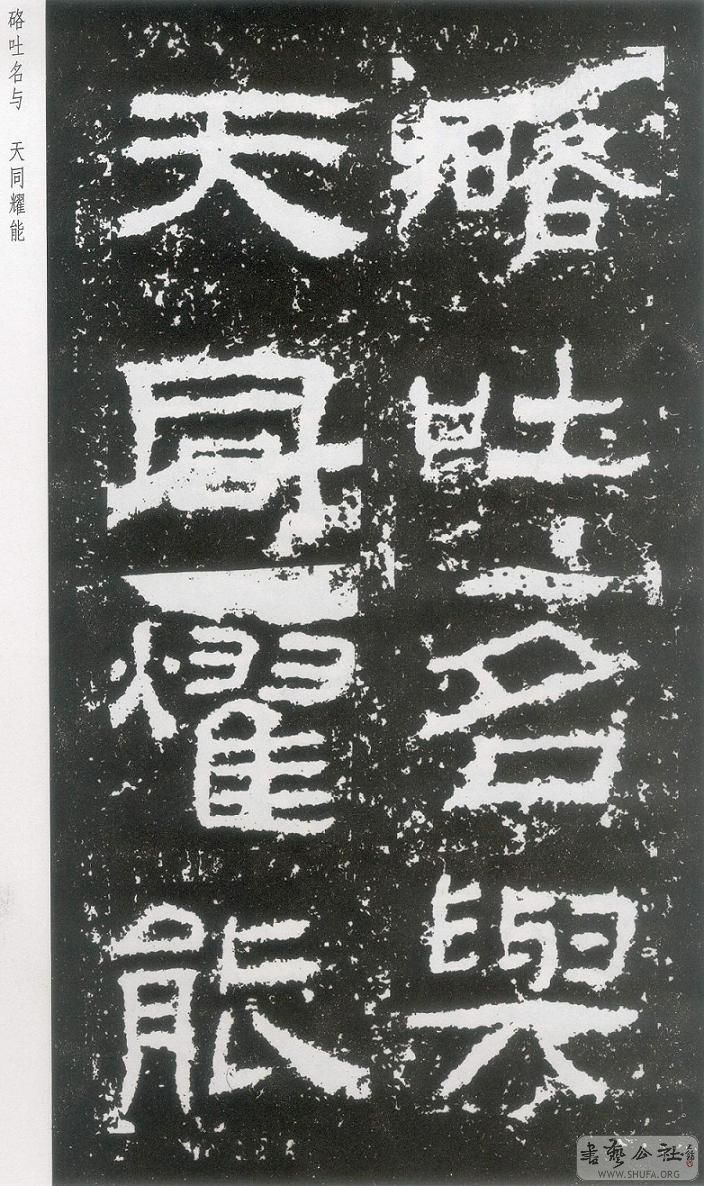 硌吐名與
天同燿能
硌吐名与 天同耀能
書藝公社
WWW.SHUFA.ORG